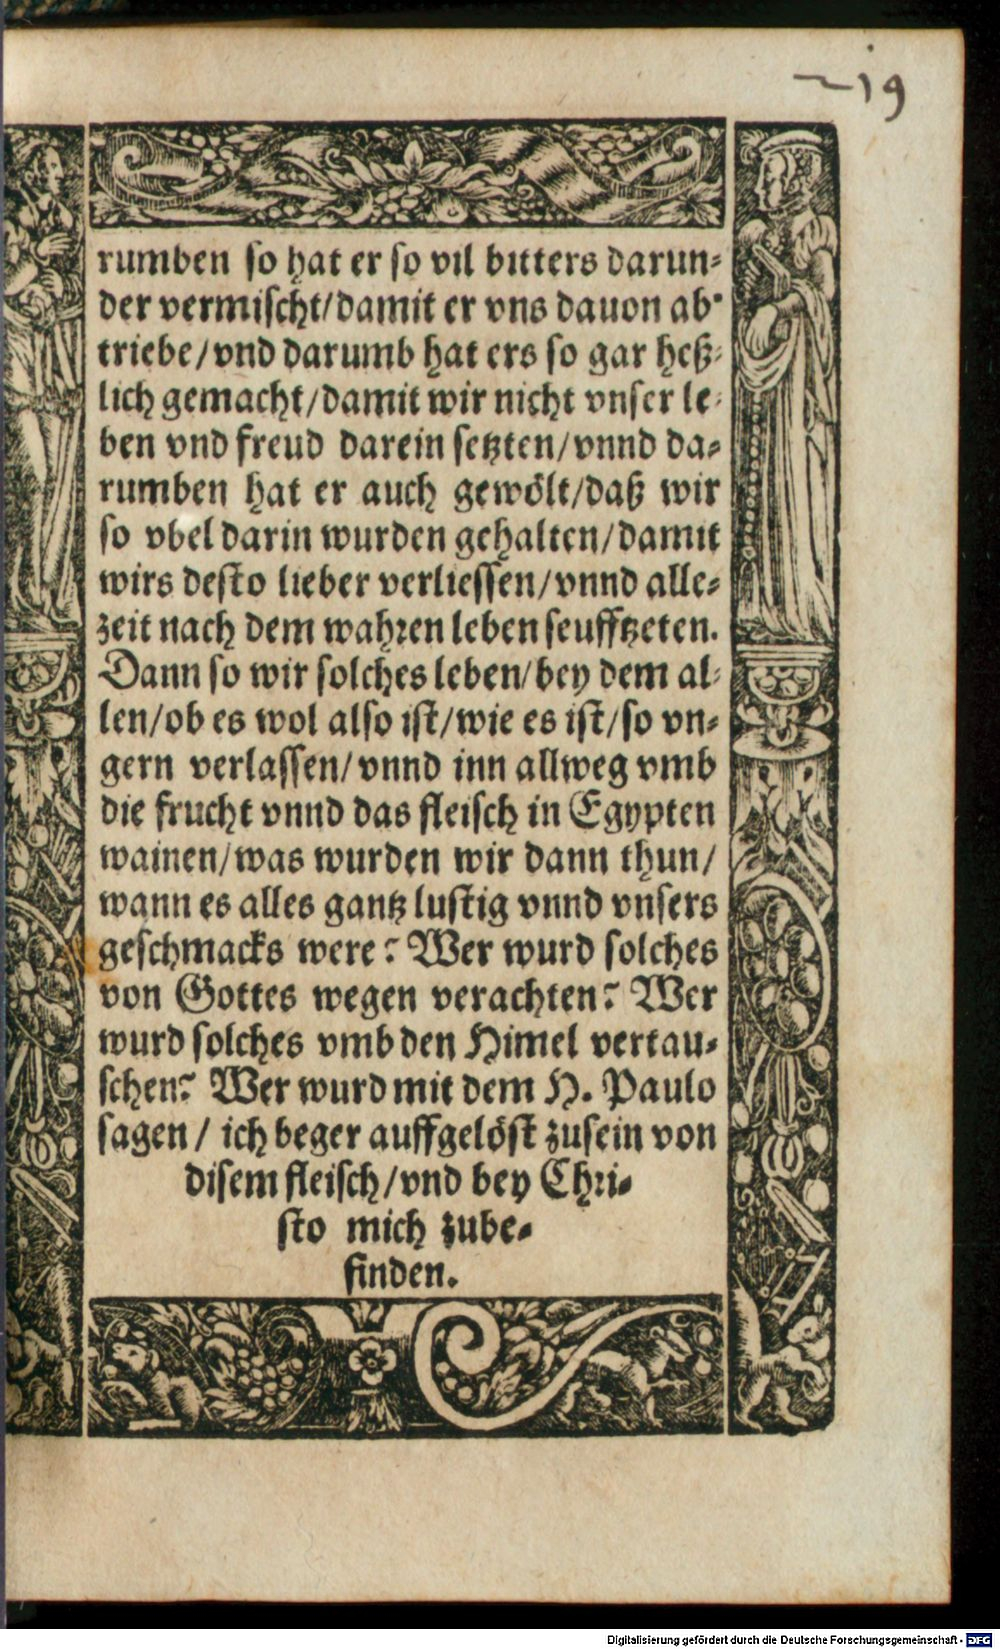 19
rumben so hat er so vil bitters darun⸗
der vermischt/damit er vns dauon ab⸗
triebe/vnd darumb hat ers so gar heß⸗
lich gemacht/damit wir nicht vnser le⸗
ben vnd freud darein setzten/vnnd da⸗
rumben hat er auch gewölt/daß wir
so vbel darin wurden gehalten/damit
wirs desto lieber verliessen/vnnd alle⸗
zeit nach dem wahren leben seufftzeten.
Dann so wir solches leben/bey dem al⸗
len/ob es wol also ist/wie es ist/so vn⸗
gern verlassen/vnnd inn allweg vmb
die frucht vnnd das fleisch in Egypten
wainen/was wurden wir dann thun/
wann es alles gantz lustig vnnd vnsers
geschmacks were? Wer wurd solches
von Gottes wegen verachten? Wer
wurd solches vmb den Himel vertau⸗
schen? Wer wurd mit dem H. Paulo
sagen/ ich beger auffgelöst zusein von
disem fleisch/vnd bey Chri⸗
sto mich zube⸗
finden.
Digitalisierung gefördert durch die Deutsche Forschungsgemeinschaft - DFG